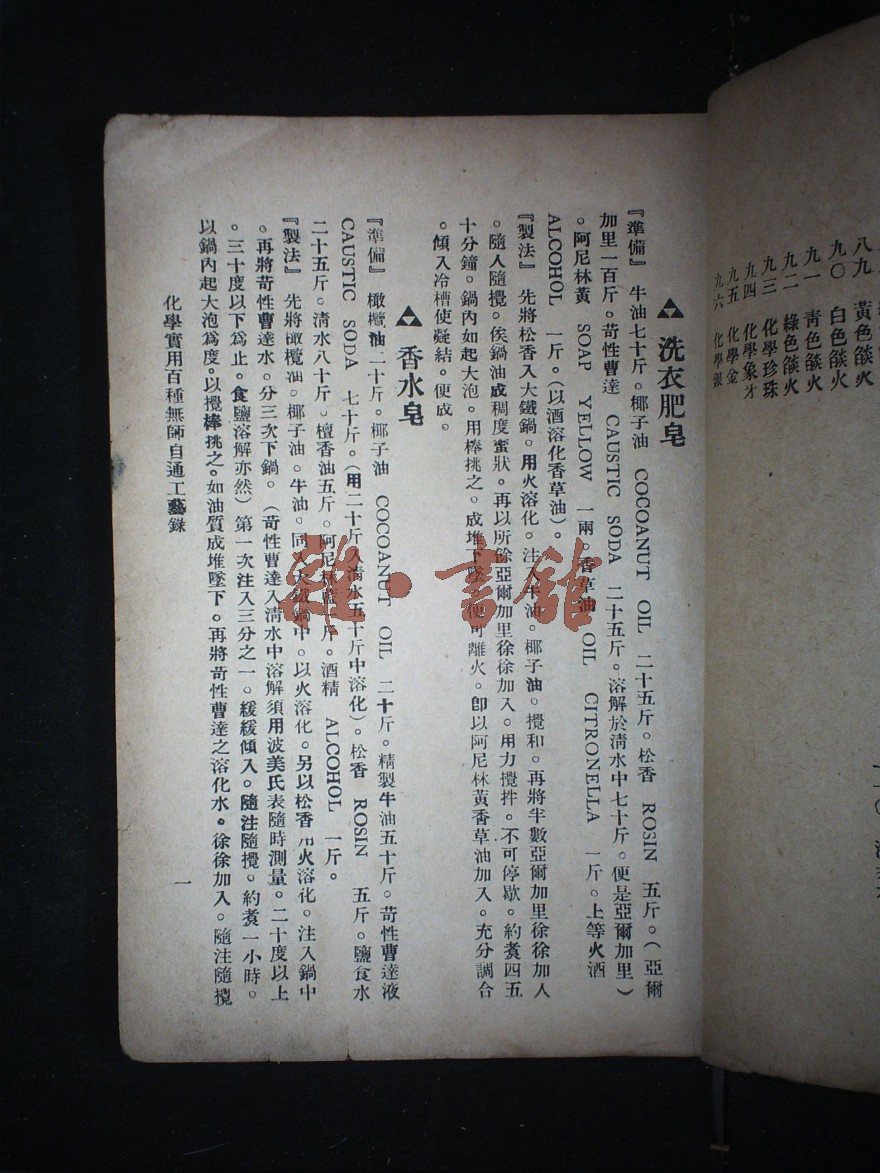 八九 黃色燄火
九〇 白色燄火
九一 青色燄火
九二 綠色燄火
九三 化學珍珠
九四 化學象牙
九五 化學金
九六 化學銀
洗衣肥皂
『準備』 牛油七十斤。椰子油 COCOANUT OIL 二十五斤。松香 ROSIN 五斤。(亞爾
加里一百斤。苛性曹達 CAUSTIC SODA 二十五斤。溶解於清水中七十斤。便是亞爾加里)
。阿尼林黃 SOAP YELLOW 一兩 香草油 OIL CITRONELLA 一斤。上等火酒
ALCOHOL 一斤。(以酒溶化香草油)。
『製法』 先將松香入大鐵鍋。用火溶化。注入牛油。椰子油。攪和。再將半數亞爾加里徐徐加入
。隨人隨攪。俟鍋油成稠度蜜狀。再以所餘亞爾加里徐徐加入。用力攪拌。不可停歇。約煮四五
十分鐘。鍋內如起大泡。用棒挑之。成堆下墜。便可離火。卽以阿尼林黃香草油加入。充分調合
。傾入冷槽使凝結。便成。
香水皂
『準備』 橄欖油二十斤。椰子油 COCOANUT OIL 二十斤。精製牛油五十斤。苛性曹達液
CAUSTIC SODA 七十斤。(用二十斤入清水五十斤中溶化)。松香 ROSIN 五斤。鹽食水
二十五斤。清水八十斤。檀香油五斤。阿尼林藍一斤。酒精 ALCOHOL 一斤。
『製法』 先將橄欖油。椰子油。牛油。同入大鐵鍋中。以火溶化。另以松香用火溶化。注入鍋中
。再將苛性曹達水。分三次下鍋。(苛性曹達入清水中溶解須用波美氏表隨時測量。二十度以上
。三十度以下爲止。食鹽溶解亦然)第一次注入三分之一。緩緩傾入。隨注隨攪。約煮一小時。
以鍋內起大泡爲度。以攪棒挑之。如油質成堆墜下。再將苛性曹達之溶化水。徐徐加入。隨注隨攪
化學實用百種無師自通工藝錄
一
雜·書館